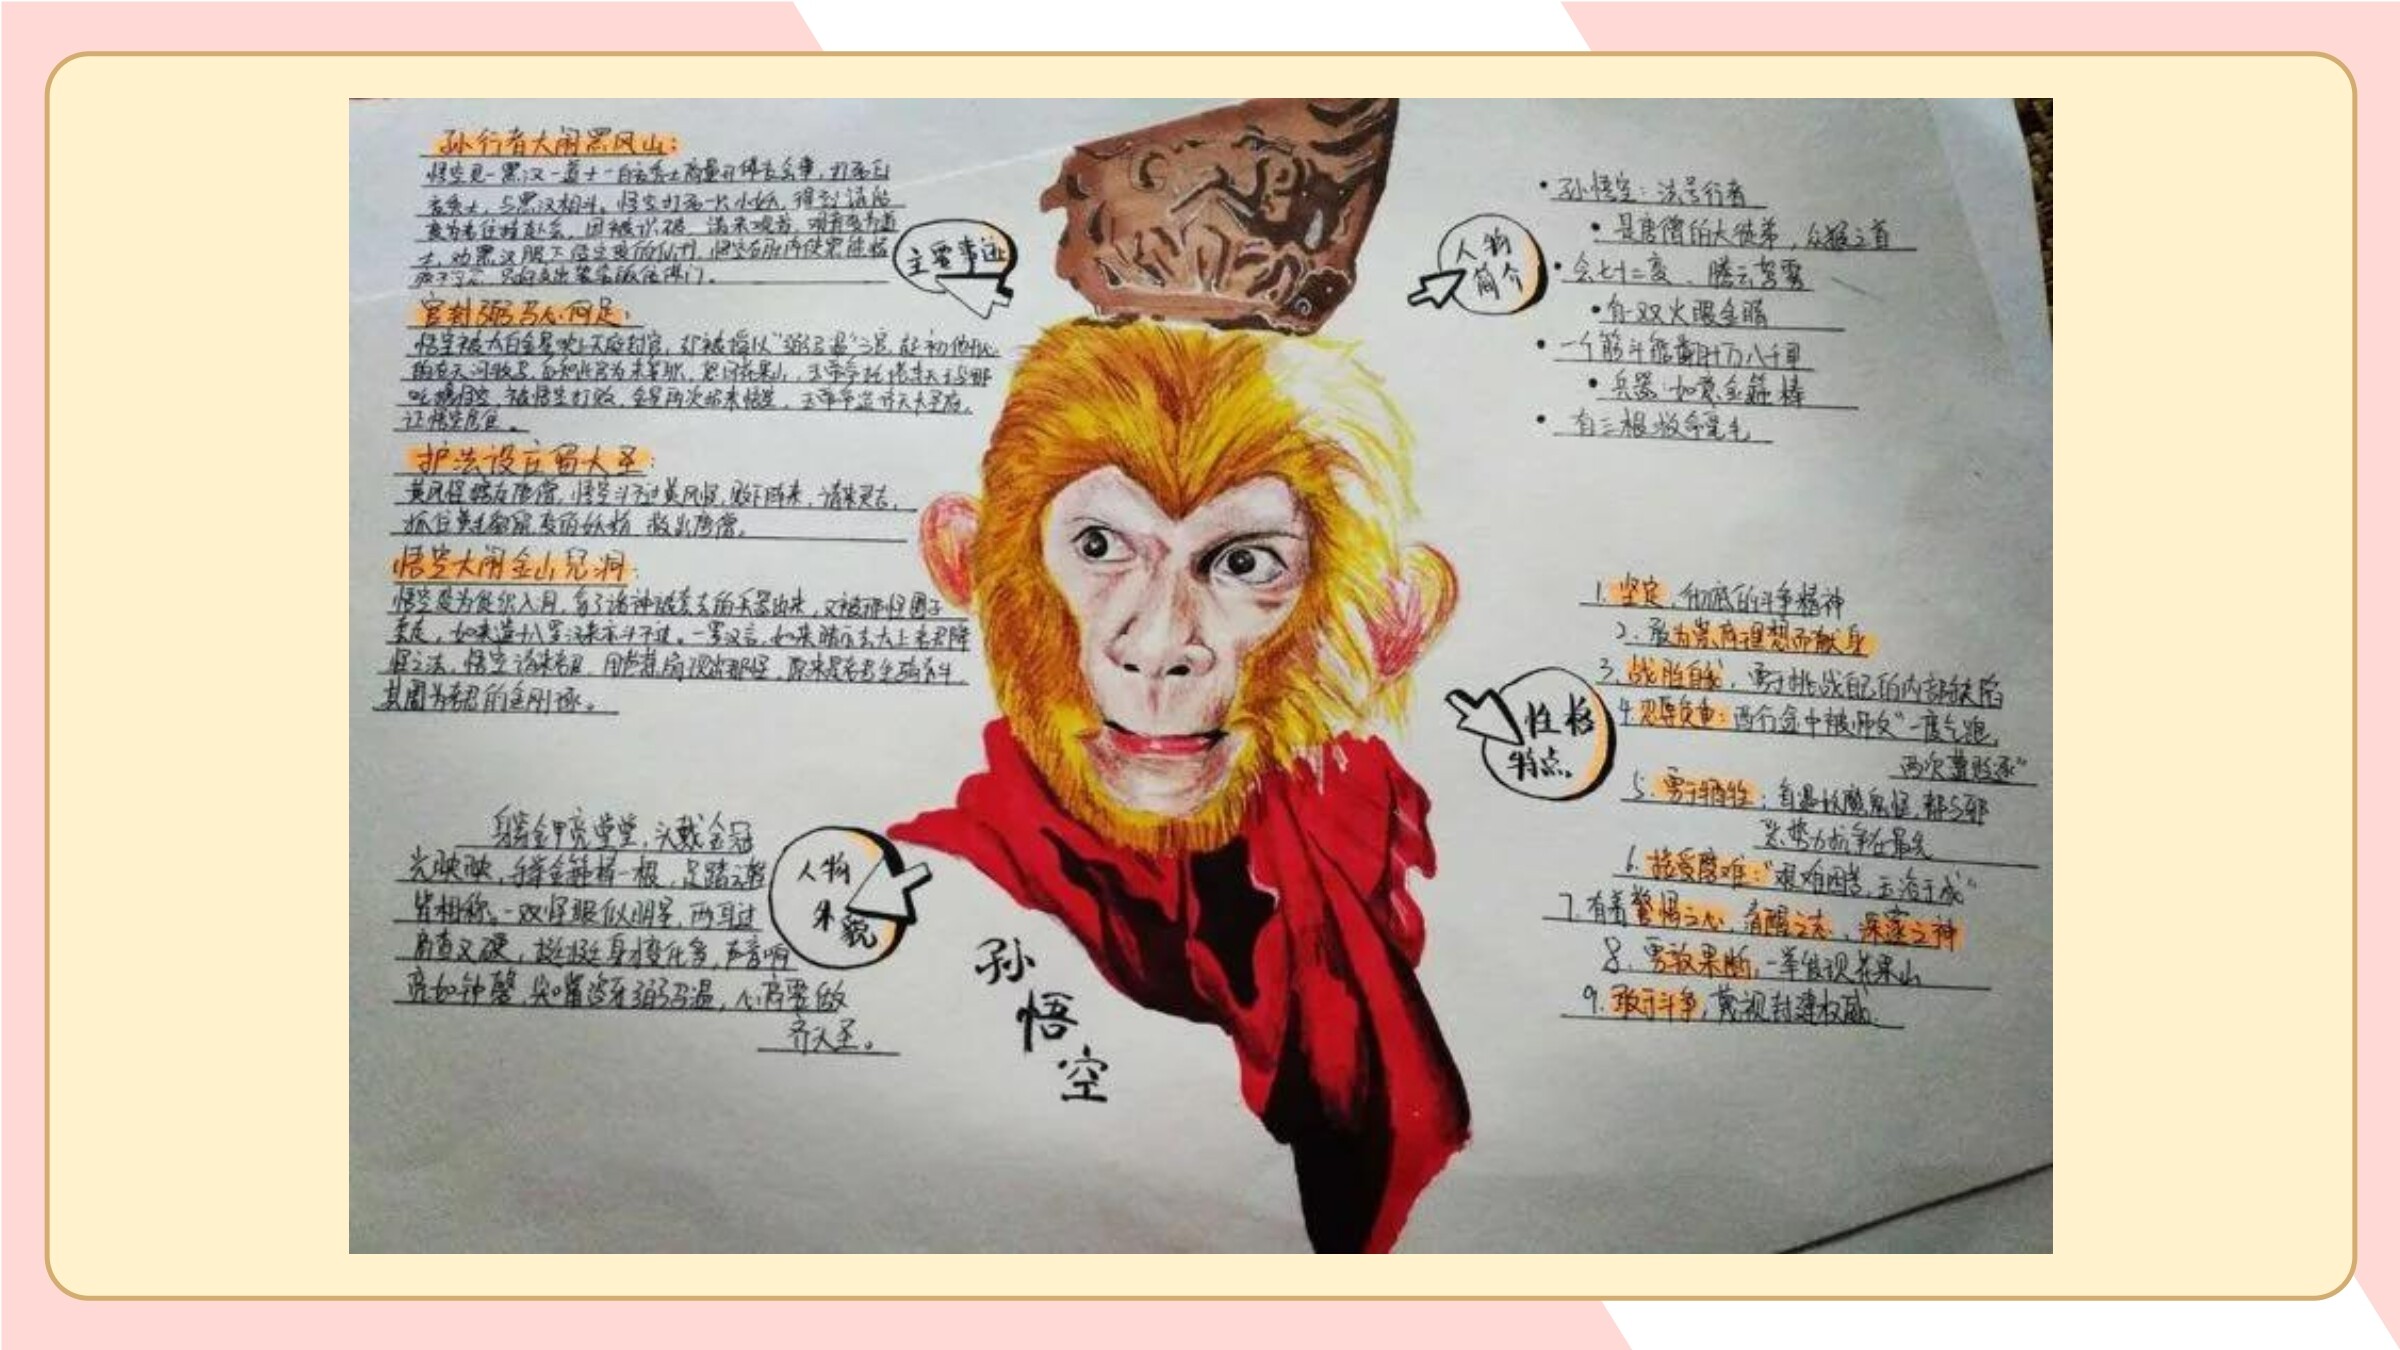 孙行者大闹黑风山：
悟空见一黑汉一道士一白衣秀士商量开佛衣会事，打死白
衣秀士，与黑汉相斗。悟空打死一小妖，得到请帖
变为老住持赴会，因被识破，请来观音，观音变为道
士，劝黑汉服下悟空变的仙丹，悟空在肚内使黑熊精
官封弼马心何足：
悟空被太白金星唤上天庭封官，却被授以“弼马温”之官，起初他
让悟空居住。
护法设庄留大圣：
黄风怪掳去唐僧，悟空斗不过黄风怪，败下阵来，请来灵吉，
抓住黄毛貂鼠变的妖精，救出唐僧。
悟空大闹金山兜洞：
悟空变为促织入月，有了诸神被套去的兵器出来，又被那怪圈子
套走，如来遣十八罗汉来亦斗不过。一罗汉言，如来暗示去太上老君降
怪之法，悟空请来老君，用芭蕉扇现出那怪，原来是老君坐骑青牛，
其圈为老君的金刚琢。
主要事迹
身穿金甲亮堂堂，头戴金冠
光映映，手举金箍棒一根，足踏云鞋
皆相称。一双怪眼似明星，两耳过
肩查又硬，挺挺身才变化多，声音响
亮如钟磬，尖嘴咨牙弼马温，心高要做
齐天圣。
人物
外貌
孙
悟
空
人物
简介
孙悟空：法号行者
是唐僧的大徒弟，众猴之首
会七十二变、腾云驾雾
有一双火眼金睛
一个筋斗能翻十万八千里
兵器：如意金箍棒
有三根救命毫毛
性格
特点。
1. 坚定、彻底的斗争精神
2. 敢为崇高理想而献身
3. 战胜自我，勇于挑战自己的内部缺陷
4. 忍辱负重：西行途中被师父“一度气跑，
两次遭贬逐”
5. 勇于牺牲：每遇妖魔鬼怪，都与邪
恶势力抗争在最先
6. 接受磨难：“艰难困苦，玉治于成”
7. 有着警惕之心，清醒之志，深邃之神
8. 勇敢果断，一举发现花果山
9. 敢于斗争，蔑视封建权威